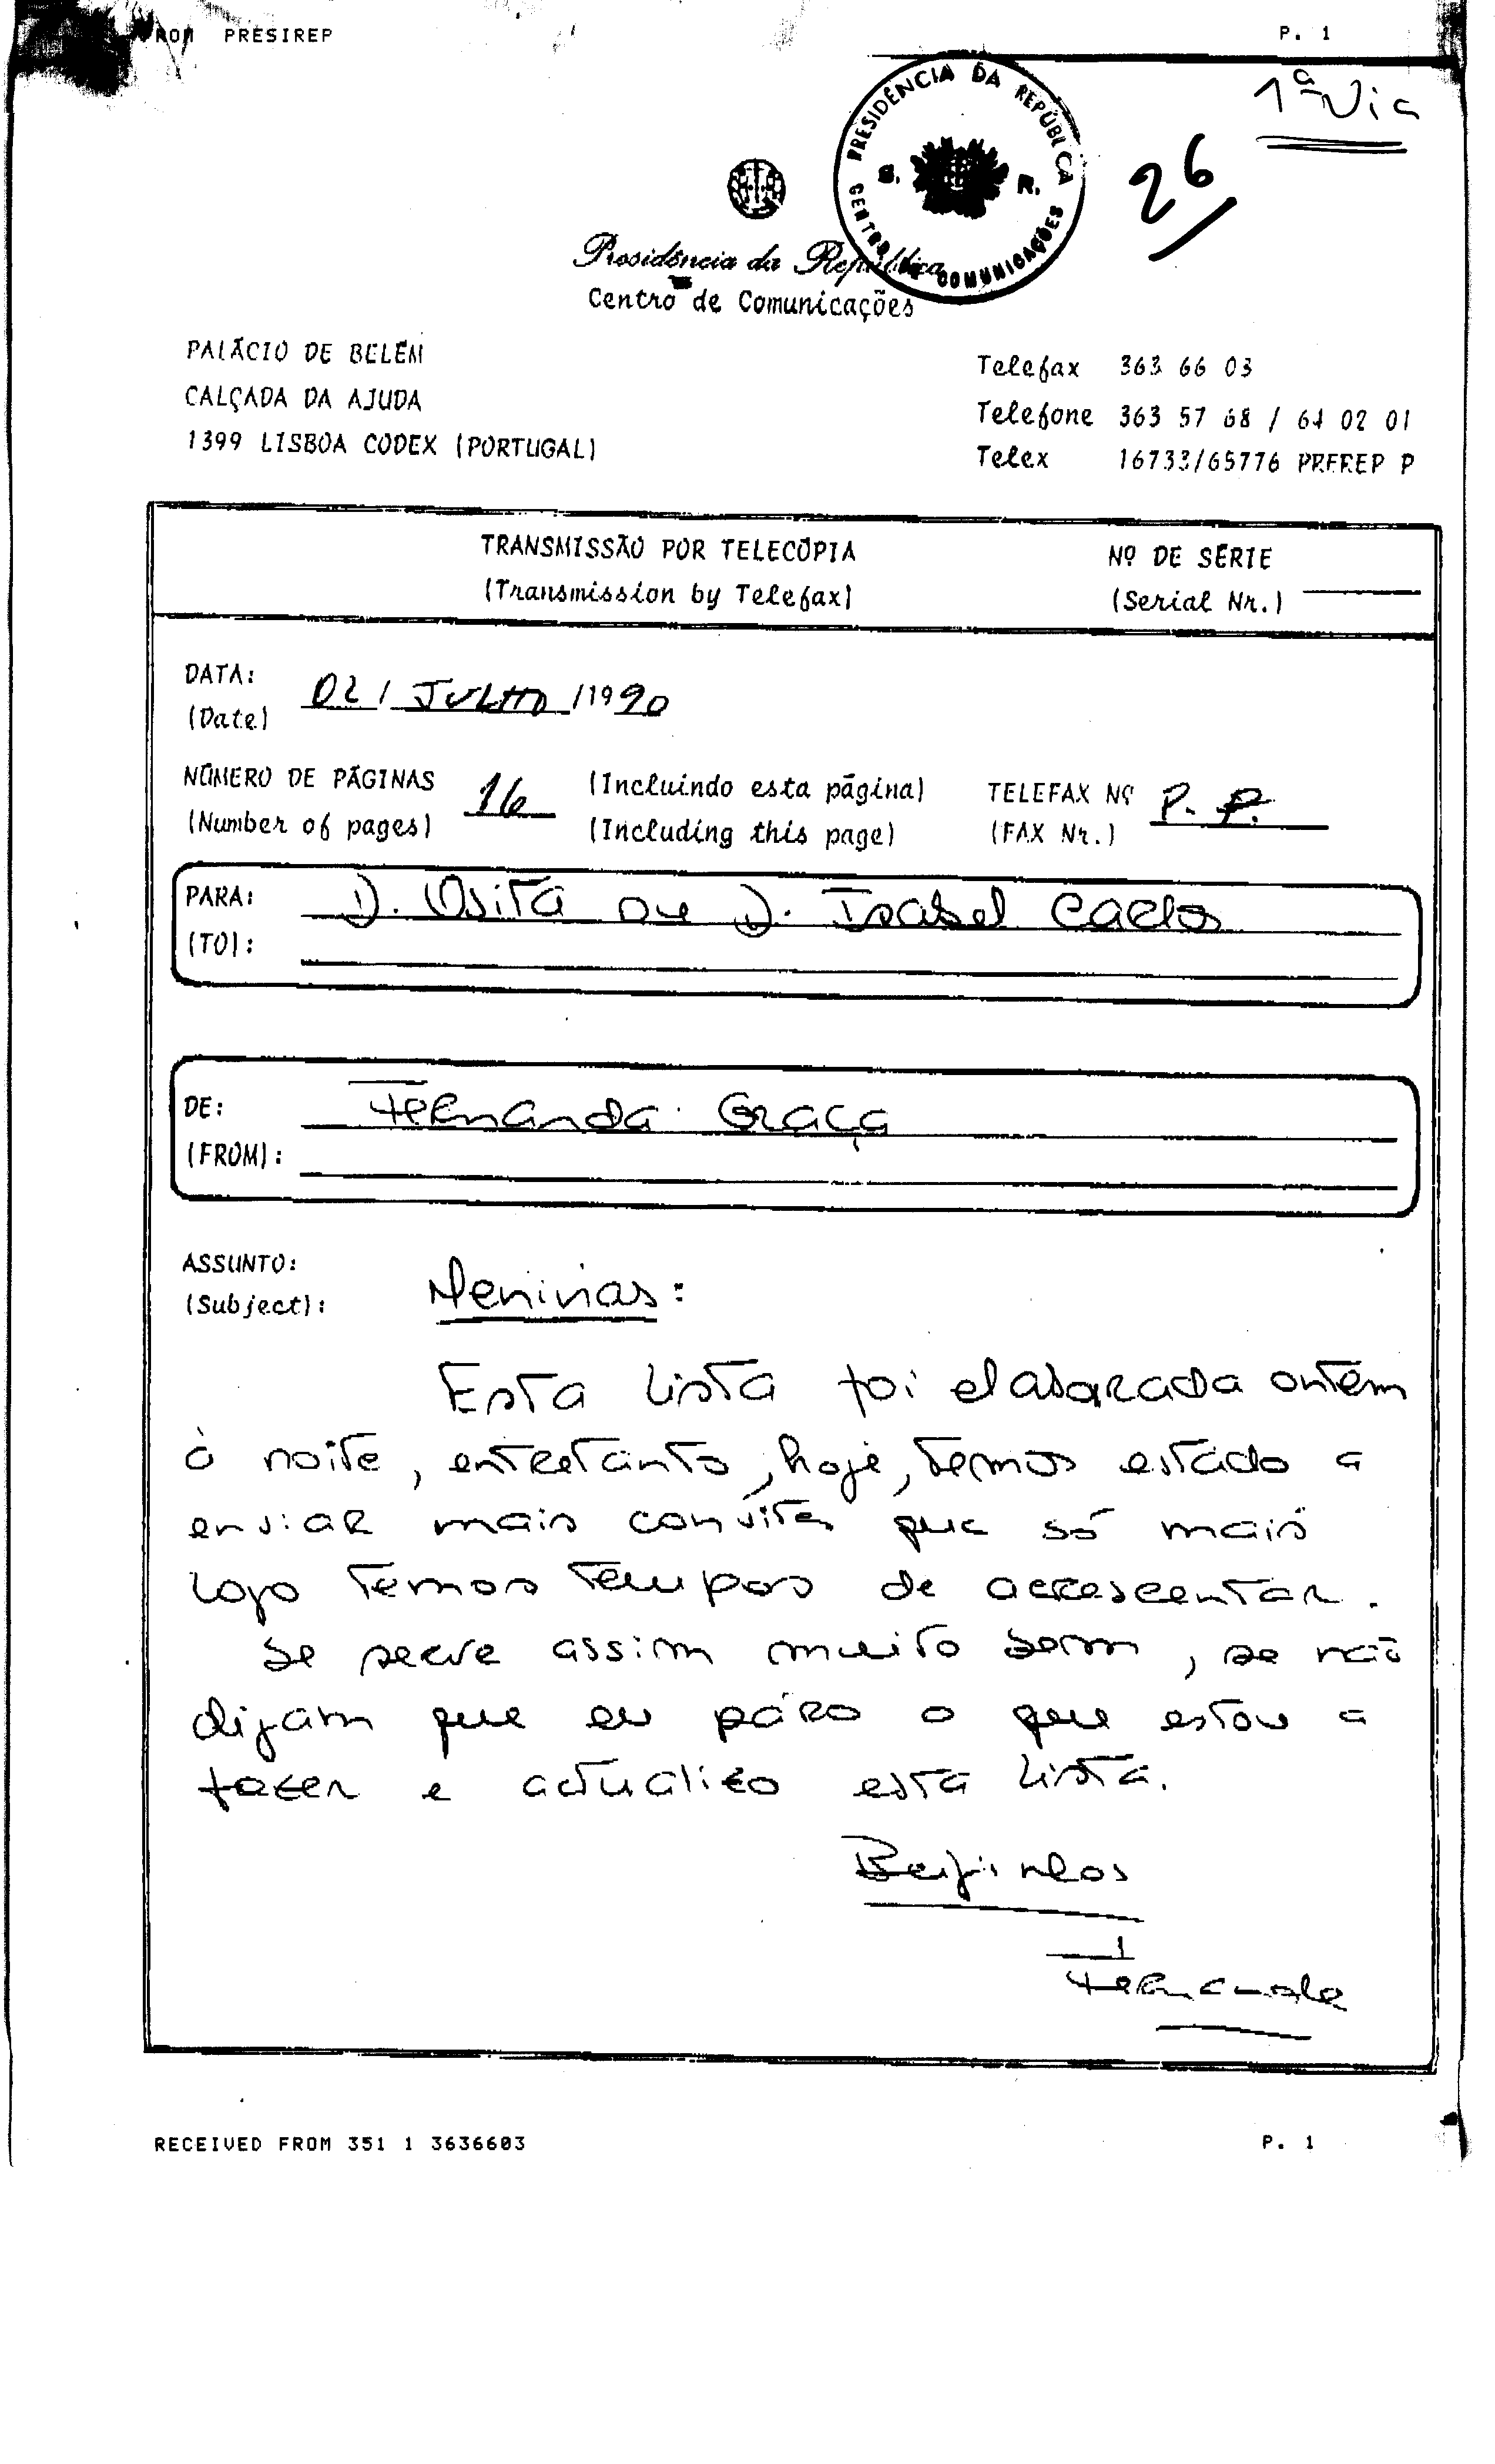 FROM PRESIREP P. 1
1ª Via
26
PRESIDÊNCIA DA REPÚBLICA
S. R.
CENTRO DE COMUNICAÇÕES
Presidência da República
Centro de Comunicações
PALÁCIO DE BELÉM
CALÇADA DA AJUDA
1399 LISBOA CODEX (PORTUGAL)
Telefax 363 66 03
Telefone 363 57 68 / 64 02 01
Telex 16733/65776 P
TRANSMISSÃO POR TELECÓPIA
(Transmission by Telefax)
Nº DE SÉRIE
(Serial Nr.)
DATA: 02 / JULHO /1990
(Date)
NÚMERO DE PÁGINAS 16 (Incluindo esta página) TELEFAX Nº P. P.
(Number of pages) (Including this page) (FAX Nr.)
PARA: D. Osita ou D. Isabel Carlos
(TO):
DE: Fernanda Graça
(FROM):
ASSUNTO: Meninas:
(Subject):
Esta lista foi elaborada ontem
à noite, entretanto, hoje, temos estado a
enviar mais convites que só mais
logo temos tempos de acrescentar.
Se serve assim muito bem, se não
digam que eu páro o que estou a
fazer e actualizo esta lista.
Beijinhos
Fernanda
RECEIVED FROM 351 1 3636603 P. 1